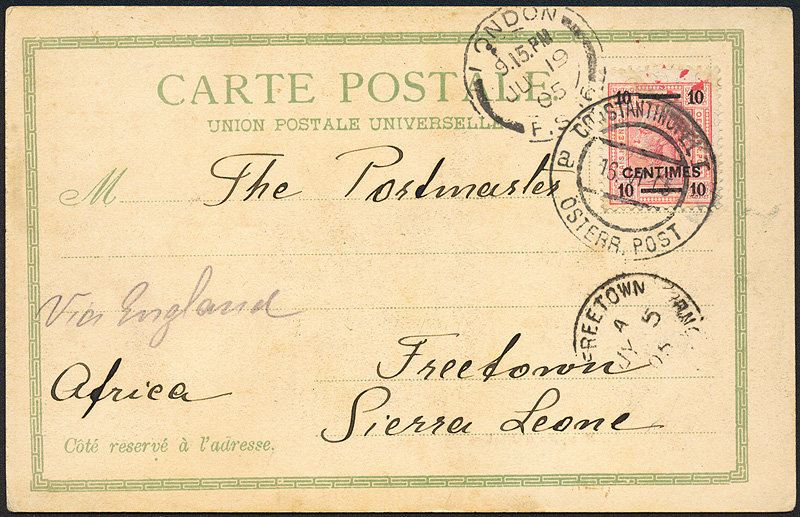 CARTE POSTALE.
UNION POSTALE UNIVERSELLE
LONDON
9.15.PM
JU 19
05
F.S
10 10
CENTIMES
10 10
CONSTANTINOPEL I
16
a
ÖSTERR. POST
M The Postmaster
Via England
FREETOWN
A
JY 5
05
Freetown
Africa
Sierra Leone
Côté reservé à l'adresse.